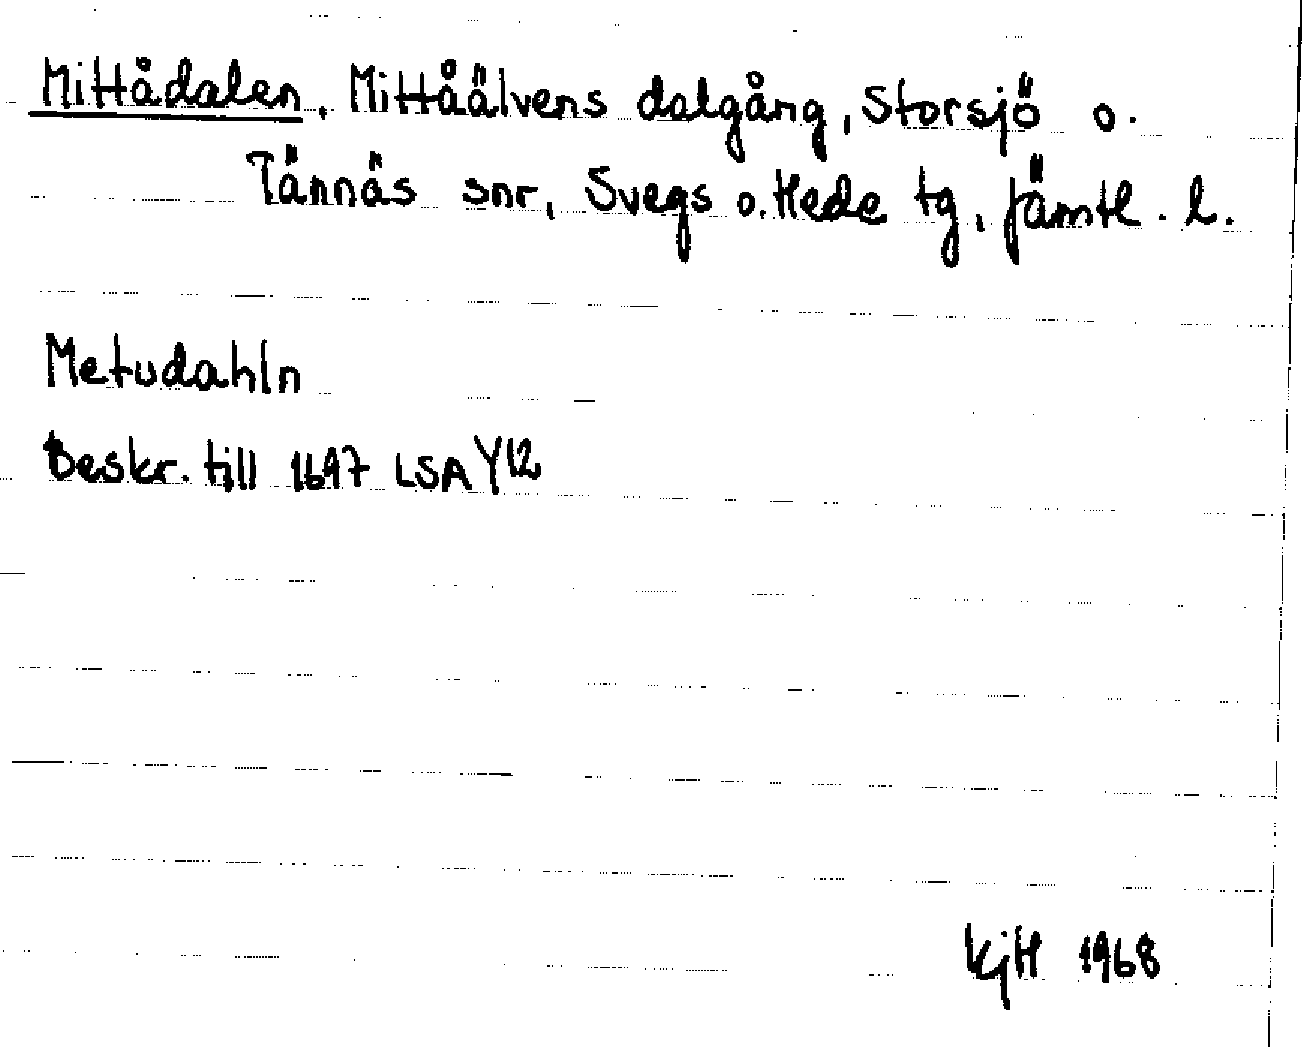 Mittådalen, Mittåälvens dalgång, Storsjö o.
Tännäs snr, Svegs o. Hede tg, Jämtl. l.
Metudahln
Beskr. till 1697 LSA Y12
KjH 1968